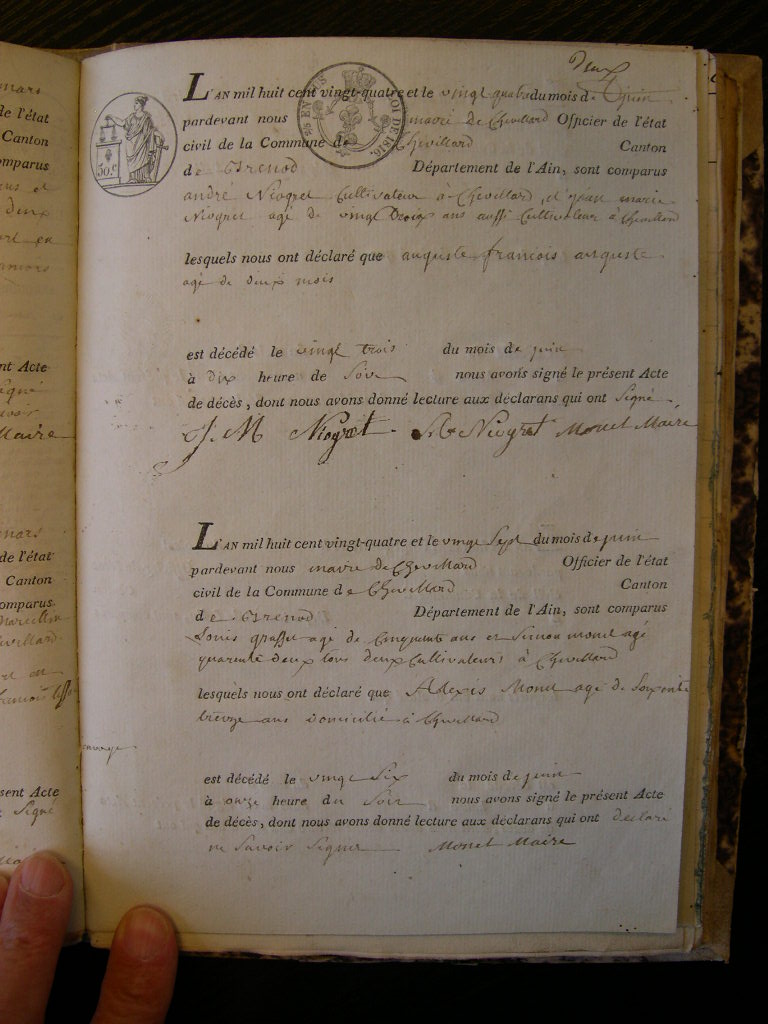 Deux
L'AN mil huit cent vingt-quatre et le vingt quatre du mois de juin
pardevant nous maire de Chevillard Officier de l'état
civil de la Commune de Chevillard Canton
de Brenod Département de l'Ain, sont comparus
andré Niogret Cultivateur à Chevillard, et jean marie
Niogret agé de vingt troix ans aussi Cultivateur à Chevillard
lesquels nous ont déclaré que auguste francois auguste
agé de deux mois
est décédé le vingt trois du mois de juin
à dix heure de Soir nous avons signé le présent Acte
de décès, dont nous avons donné lecture aux déclarans qui ont Signé
J. M Niogret Niogret Monet Maire
L'AN mil huit cent vingt-quatre et le vingt Sept du mois de juin
pardevant nous maire de Chevillard Officier de l'état
civil de la Commune de Chevillard Canton
de Brenod Département de l'Ain, sont comparus
Louis agé de Cinquante ans et Simon monet agé
quarente deux tous deux Cultivateurs à Chevillard
lesquels nous ont déclaré que Alexis Monet agé de Soixente
treize ans Domicilié à Chevillard
est décédé le vingt Six du mois de juin
à onze heure du Soir nous avons signé le présent Acte
de décès, dont nous avons donné lecture aux déclarans qui ont declaré
ne Savoir Signer Monet Maire
50.c
ROI DE 1816.
mars
de l'état
Canton
omparus
deux
nt Acte
Signé
Maire
mars
de l'état
Canton
omparus.
sent Acte
Signé